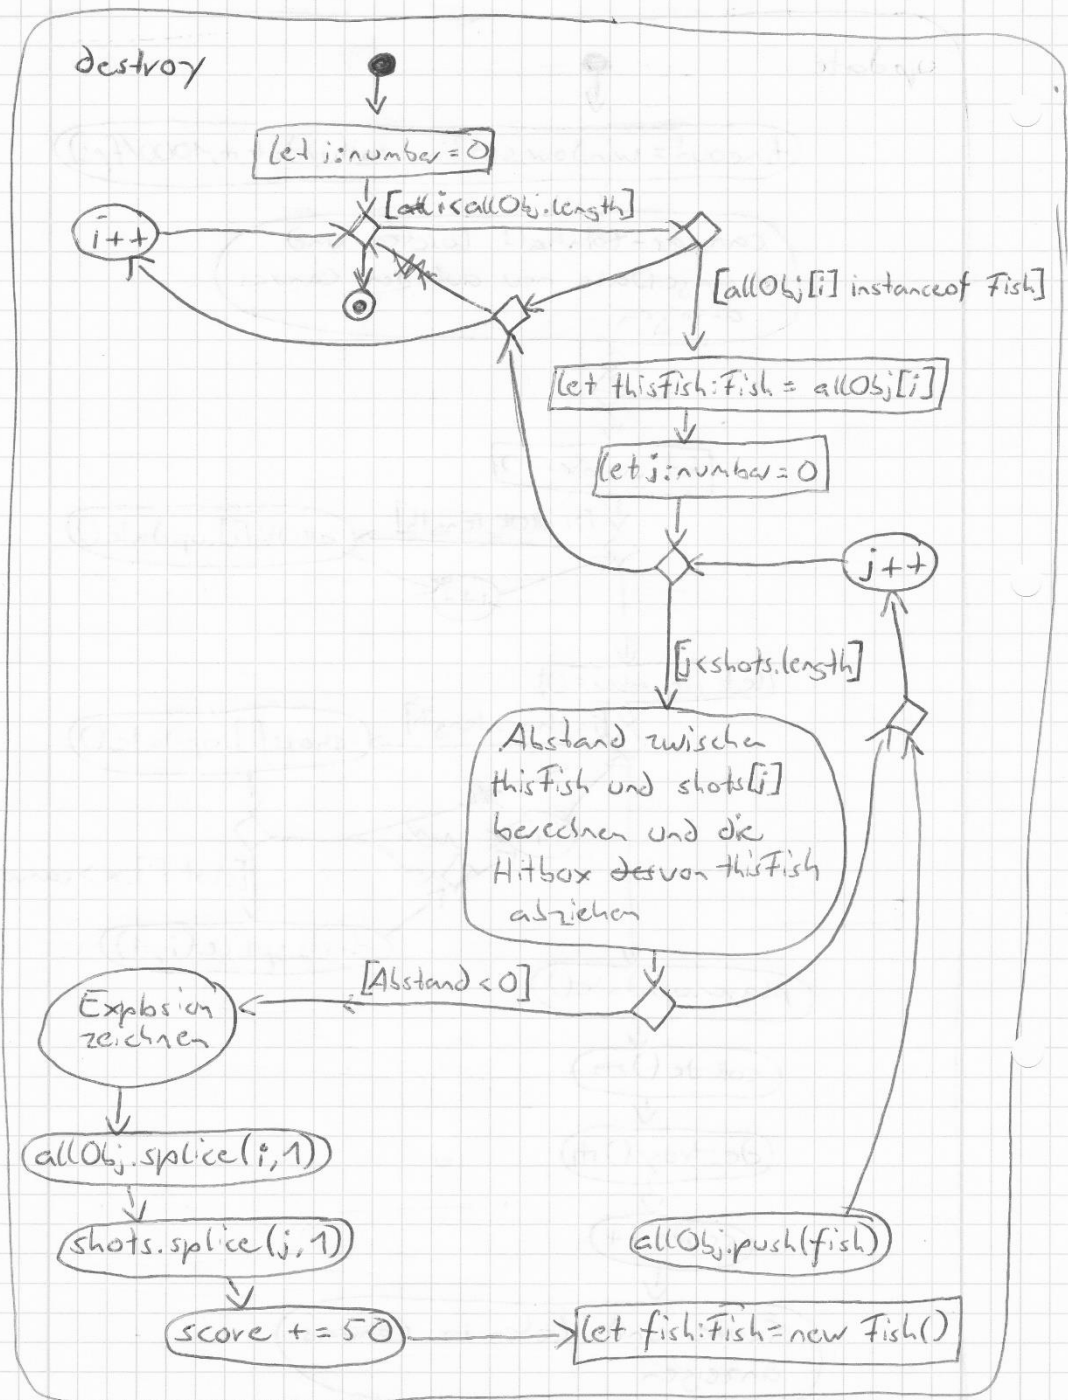 destroy
let i:number=0
[i<allObj.length]
i++
[allObj[i] instanceof Fish]
let thisFish:Fish = allObj[i]
let j:number=0
j++
[j<shots.length]
Abstand zwischen
thisFish und shots[j]
berechnen und die
Hitbox des von thisFish
abziehen
[Abstand<0]
Explosion
zeichnen
allObj.splice(i,1)
shots.splice(j,1)
allObj.push(fish)
score +=50
let fish:Fish=new Fish()